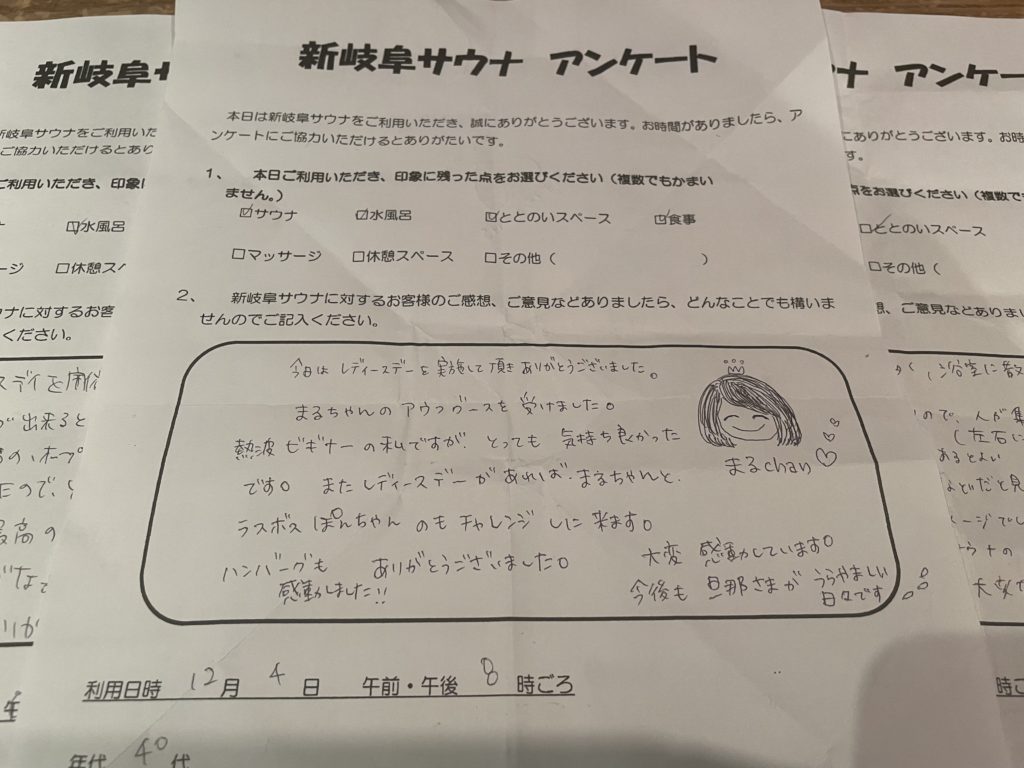 新岐阜サウナ アンケート
本日は新岐阜サウナをご利用いただき、誠にありがとうございます。お時間がありましたら、ア
ンケートにご協力いただけるとありがたいです。
1、 本日ご利用いただき、印象に残った点をお選びください（複数でもかまい
ません。）
☑サウナ ☑水風呂 ☑ととのいスペース ☑食事
□マッサージ □休憩スペース □その他（ ）
2、 新岐阜サウナに対するお客様のご感想、ご意見などありましたら、どんなことでも構いま
せんのでご記入ください。
今日は レディースデーを実施して頂きありがとうございました。
まるちゃんのアウフグースを受けました。
熱波ビギナーの私ですが とっても 気持ち良かった
です。 またレディースデーがあれば、まるちゃんと、
ラスボスぽんちゃん のもチャレンジしに来ます。
ハンバーグも ありがとうございました。
感動しました!!
まるchan
大変 感動しています。
今後も 旦那さまが うらやましい
日々です
利用日時 12月 4日 午前・午後 8時ごろ
年代 40代
新岐阜サ
新岐阜サウナをご利用いた
ご協力いただけるとあり
ご利用いただき、印象に
☑水風呂
ージ □休憩スペ
ウナに対するお客
ください。
が出来ると
最高の
ナ アンケー
にありがとうございます。お時
す。
点をお選びください（複
☑ととのいスペース
□その他（
想、ご意見などありまし
浴室に
ので、人が
（左右に
あるとよい
などだと見
大変
時ご